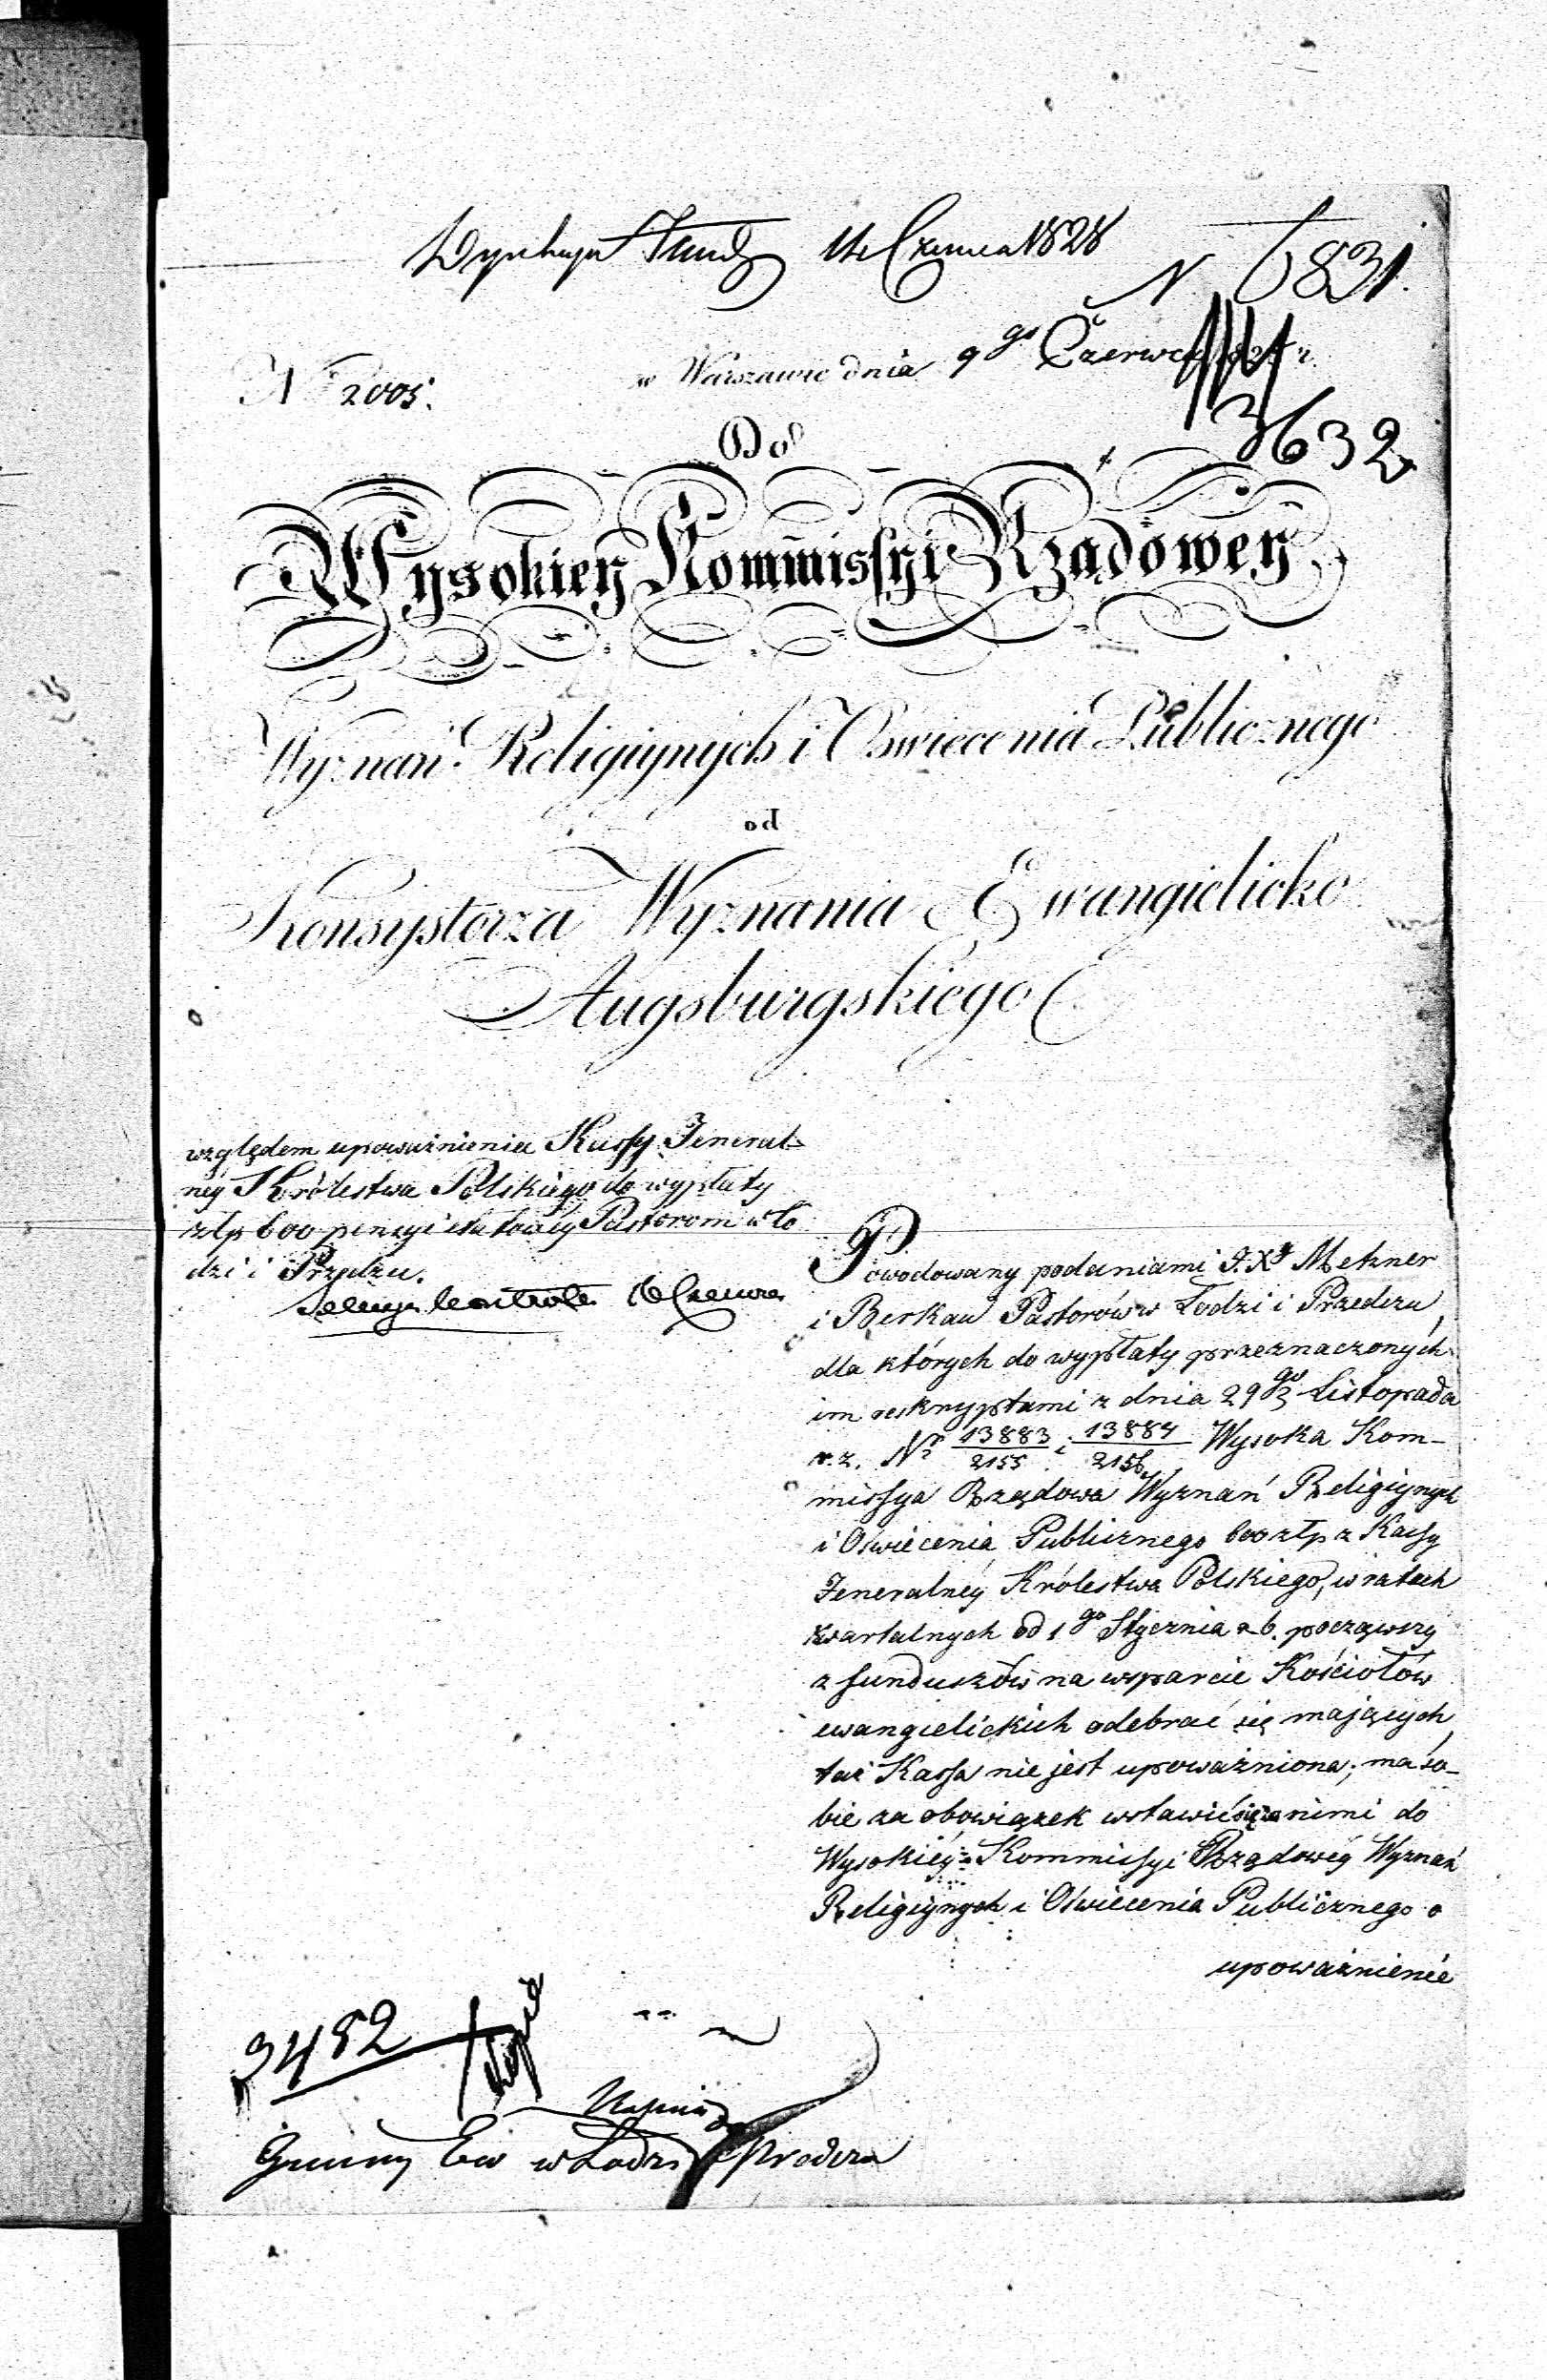 Czerwca 1828
N 6831.
N 2005.
w Warszawie dnia 9go Czerwca 1828 r.
3632
Do
Wysokiey Kommissyi Rządowey
Wyznań Religiynych i Oswiecenia Publicznego
od
Konsystorza Wyznania Ewangielicko
Augsburgskiego
względem upoważnienia Kassy Jeneral-
néy Królestwa Polskiego do wypłaty
złp 600 pensyi etatowéy Pastorom w Ło
dzi i Przedzu.
Czerwca
Powodowany podaniami J.X. Metzner
i Berkau Pastorów w Łodzi i Przedzu,
dla których do wypłaty przeznaczonych
im reskryptami z dnia 29go Listopada
r.z. Nr 13883/2155 i 13884/2156 Wysoka Kom-
missya Rządowa Wyznań Religiynych
i Oświecenia Publicznego 600 złp z Kassy
Jeneralnéy Królestwa Polskiego, w ratach
kwartalnych od 1go Stycznia r.b. począwszy
z funduszów na wsparcie Kościołów
ewangielickich odebrać się mających,
taż Kassa nie jest upoważniona; ma so-
bie za obowiązek wstawić się za nimi do
Wysokiéy Kommissyi Rządowéy Wyznań
Religiynych i Oświecenia Publicznego o
upoważnienie
3482
Gminy Ew w Łodzi Przedzu